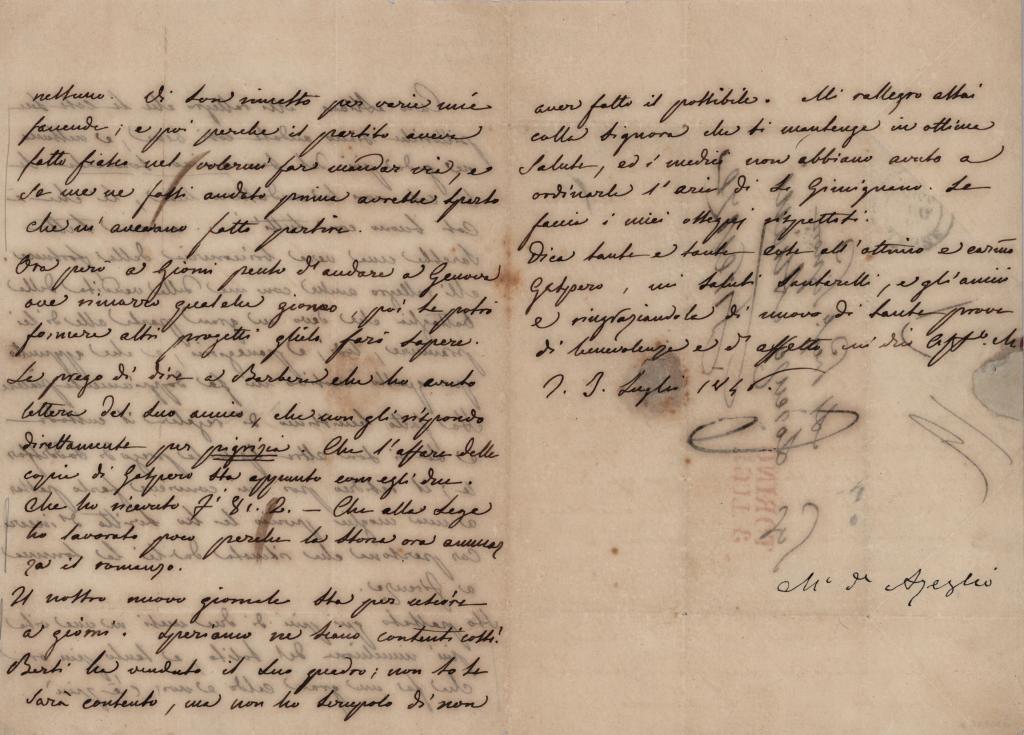 nessuno. Vi son rimasto per varie mie
faccende; e poi perchè il partito aveva
fatto fiasco nel volermi far mandar via, e
se me ne fossi andato prima avrebbe sparso
che m'avevano fatto partire.
Ora però a giorni penso d'andare a Genova
ove rimarrò qualche giorno, poi se potrò
formare altri progetti glielo farò sapere.
La prego di dire a Barberi che ho avuto
lettera del suo amico, che non gli rispondo
direttamente per pigrizia. Che l'affare delle
copie di Gaspero sta appunto com'egli dice.
Che ho ricevuto F. 81. 2. — Che alla Lega
ho lavorato poco perchè la storia ora ammaz
za il romanzo.
Il nostro nuovo giornale sta per uscire
a giorni. Speriamo ne siano contenti costì.
Berti ha venduto il suo quadro; non so se
sarà contento, ma non ho scrupolo di non
aver fatto il possibile. Mi rallegro assai
colla signora che si mantenga in ottima
salute, ed i medici non abbiano avuto a
ordinarle l'aria di S. Gimignano. Le
faccia i miei ossequj rispettosi.
Dica tante e tante cose all'ottimo e carmo
Gaspero, mi saluti Santarelli, e gli amici
e ringraziandola di nuovo di tante prove
di benevolenza e d'affetto, mi dico Affmo.
T. 3. Luglio 184
3 LUG
TORINO
M. d'Azeglio